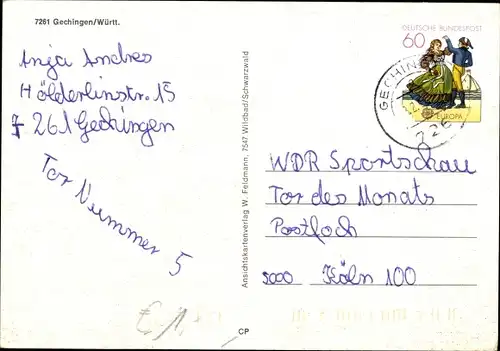 7261 Gechingen/Württ.
Anja Andres
Hölderlinstr. 15
7261 Gechingen
Tor Nummer 5
Ansichtskartenverlag W. Feldmann, 7547 Wildbad/Schwarzwald
DEUTSCHE BUNDESPOST
60
EUROPA
GECHIN
726
WDR Sportschau
Tor des Monats
Postfach
5000 Köln 100
€ 1,-
CP